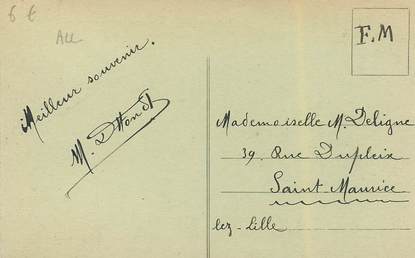 6 €
All
F.M
Meilleur souvenir.
M. 
Mademoiselle M. Deligne
39. Rue Dupleix
Saint Maurice
lez-Lille